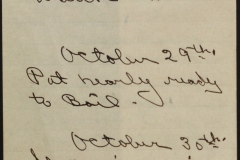 October 29th.
Pat nearly ready
to Boil.
October 30th.